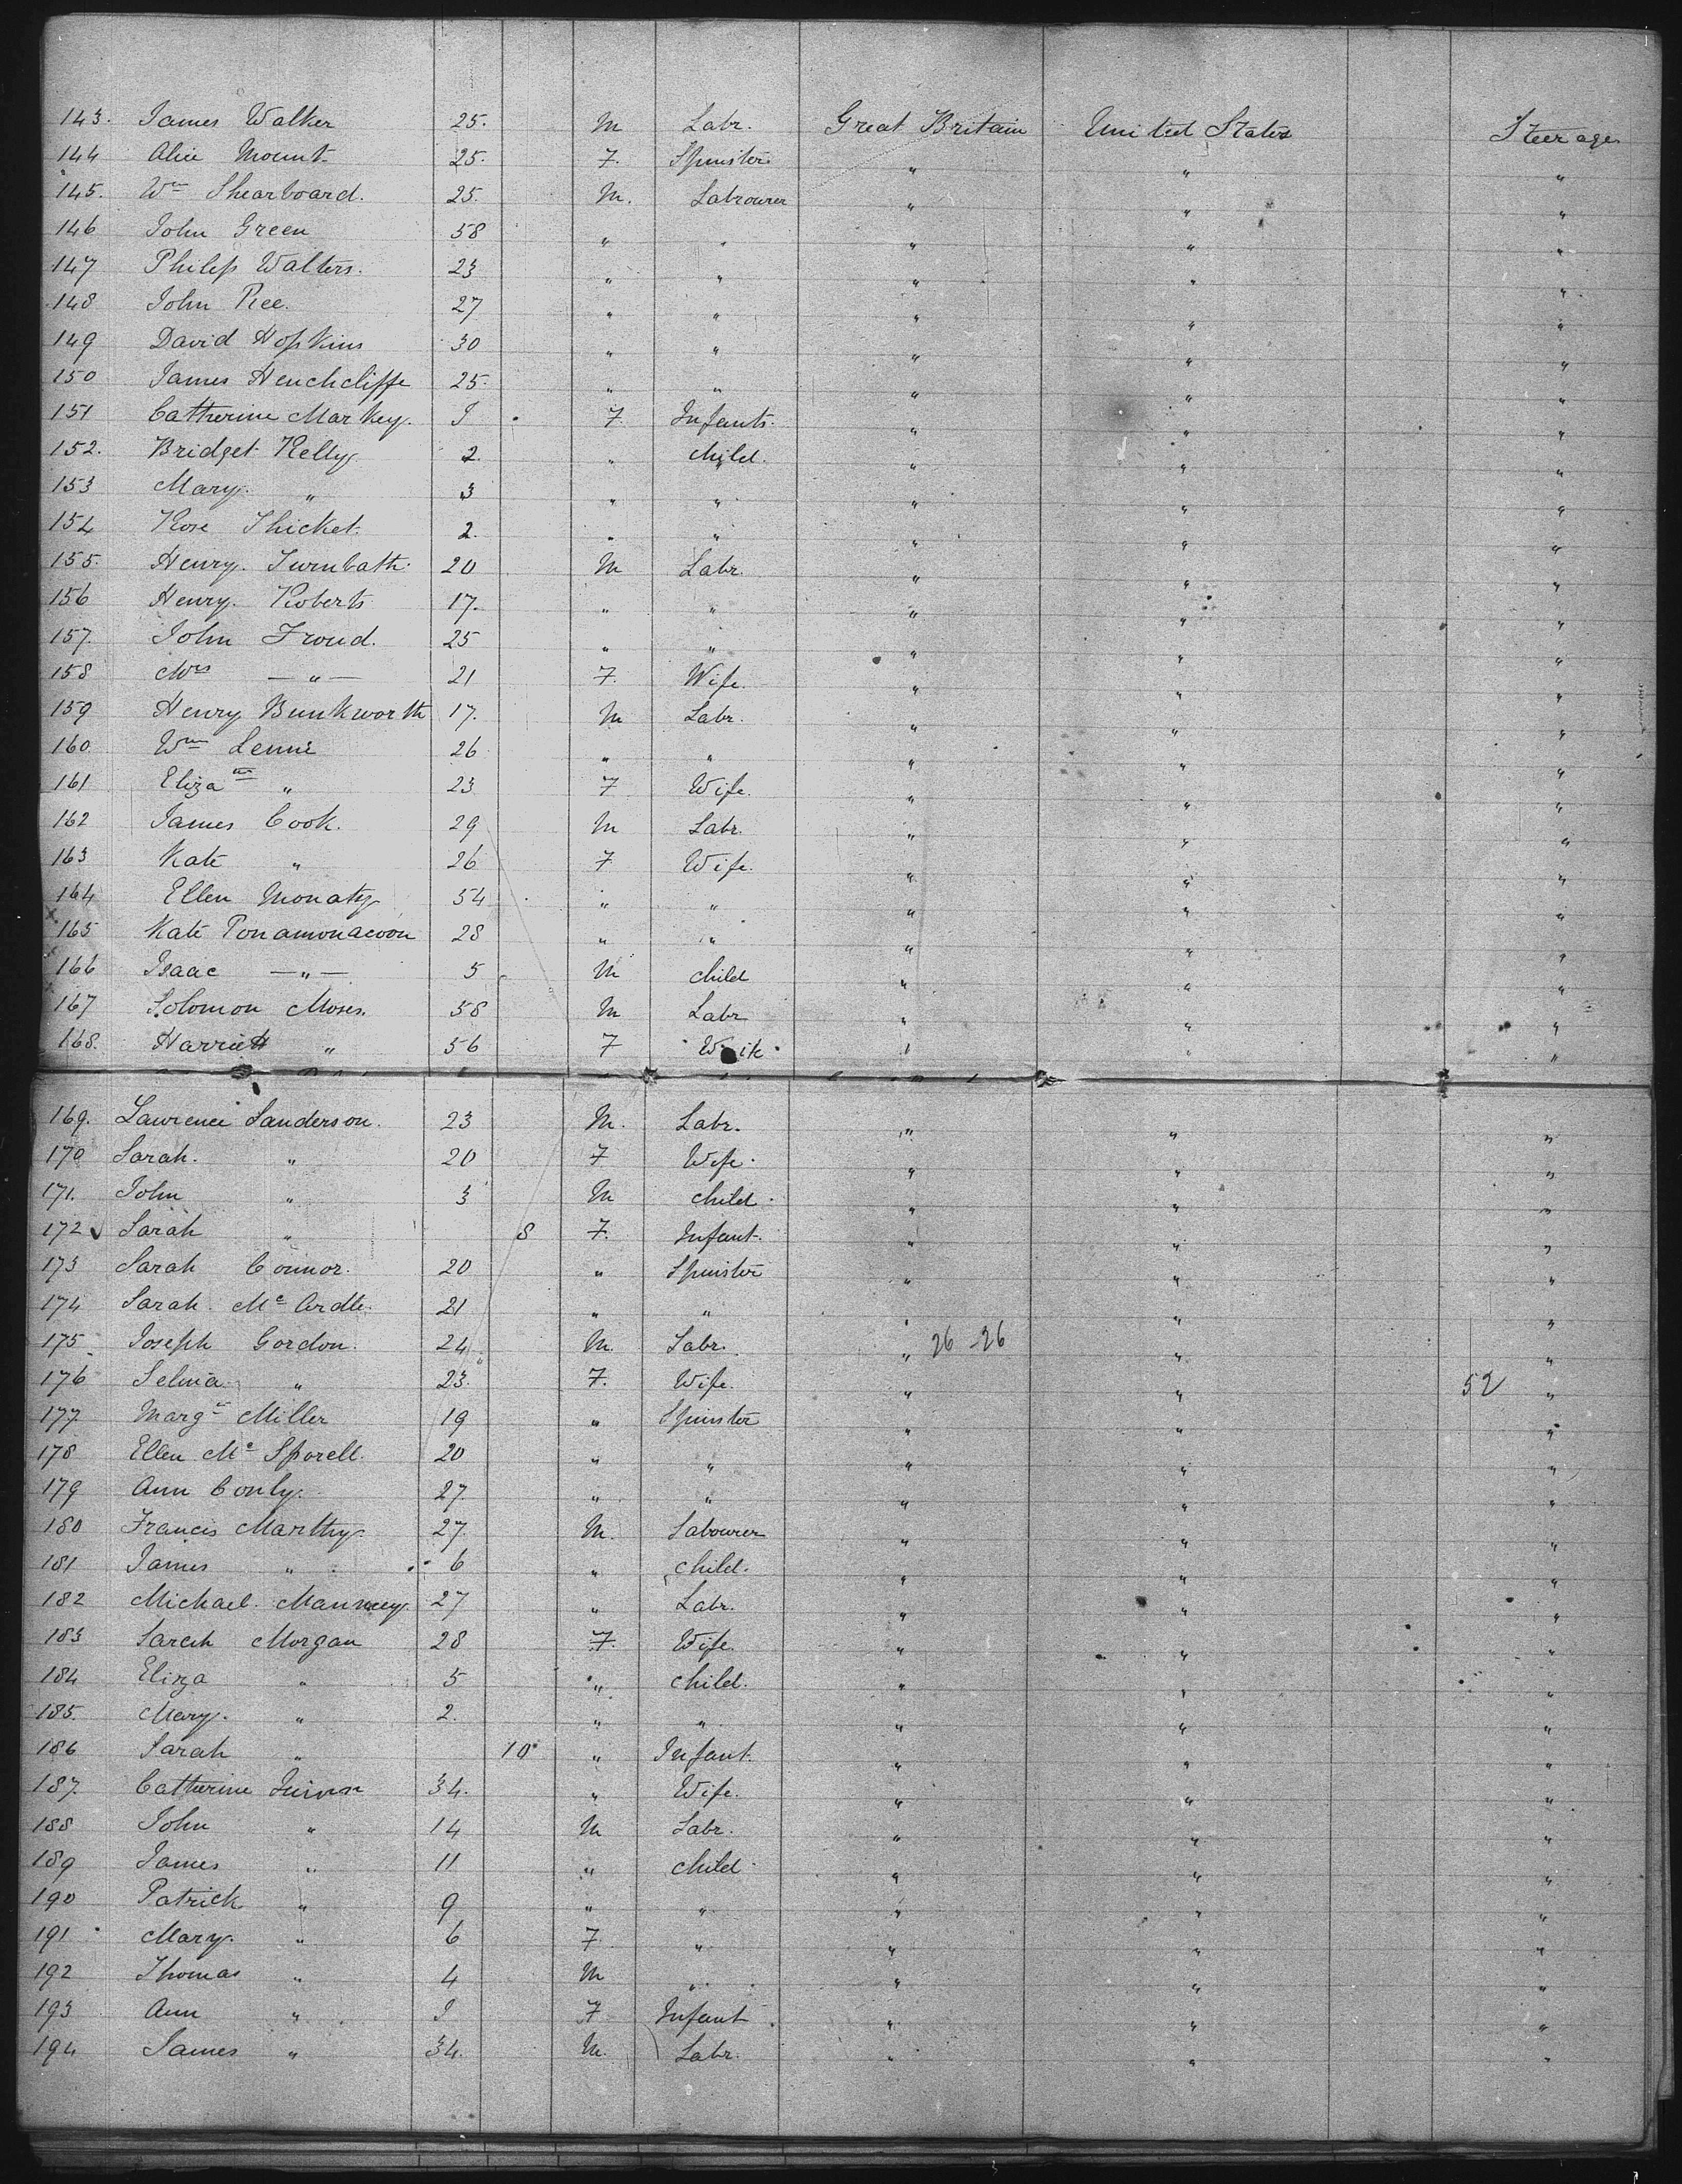 143. James Walker 25. M Labr. Great Britain United States Steerage
144 Alice Mount 25. F. Spinster " " "
145. Wm Shearboard. 25. M. Labourer " " "
146 John Green 58 " " " " "
147 Philip Walters. 23 " " " " "
148 John Ree. 27 " " " " "
149 David Hopkins 30 " " " " "
150 James Henchcliffe 25. " " " " "
151 Catherine Markey. I F Infants. " " "
152. Bridget Kelly 2. " child. " " "
153 Mary. " 3 " " " " "
154 Rose Thicket. 2. " " " " "
155. Henry. Turnbath. 20 M Labr. " " "
156 Henry. Roberts 17. " " " " "
157. John Froud. 25 " " " " "
158 Mrs — " — 21 F. Wife. " " "
159 Henry Bunkworth 17. M Labr. " " "
160. Wm Lenne 26 " " " " "
161 Eliza " 23 F Wife. " " "
162 James Cook. 29 M Labr. " " "
163 Kate " 26 F Wife. " " "
164 Ellen Monaty 54 " " " " "
165 Kate Ponamonacoon 28 " " " " "
166 Isaac — " — 5 M child " " "
167 Solomon Moses. 58 M Labr " " "
168. Harriett " 56 F Wife " " "
169. Lawrence Sanderson. 23 M. Labr. " " "
170 Sarah. " 20 F Wife. " " "
171. John " 3 M child. " " "
172 Sarah " 8 F. Infant. " " "
173 Sarah Connor. 20 " Spinster " " "
174 Sarah. Mc Ardle. 21 " " " " "
175 Joseph Gordon. 24 M. Labr. " 26 26 " "
176 Selina " 23. F. Wife. " " 52 "
177 Margt Miller 19 " Spinster " " "
178 Ellen Mc Sporell. 20 " " " " "
179 Ann Conly. 27. " " " " "
180 Francis Marthy. 27. M. Labourer " " "
181 James " 6 " child. " " "
182 Michael. Manney. 27 " Labr. " " "
183 Sarah Morgan 28 F. Wife. " " "
184 Eliza " 5 " child. " " "
185. Mary. " 2. " " " " "
186 Sarah " 10 " Infant. " " "
187. Catherine 34. " Wife. " " "
188 John " 14 M Labr. " " "
189 James " 11 " child " " "
190 Patrick " 9 " " " " "
191 Mary. " 6 F " " " "
192 Thomas " 4 M " " " "
193 Ann " I F Infant " " "
194 James " 34. M. Labr. " " "